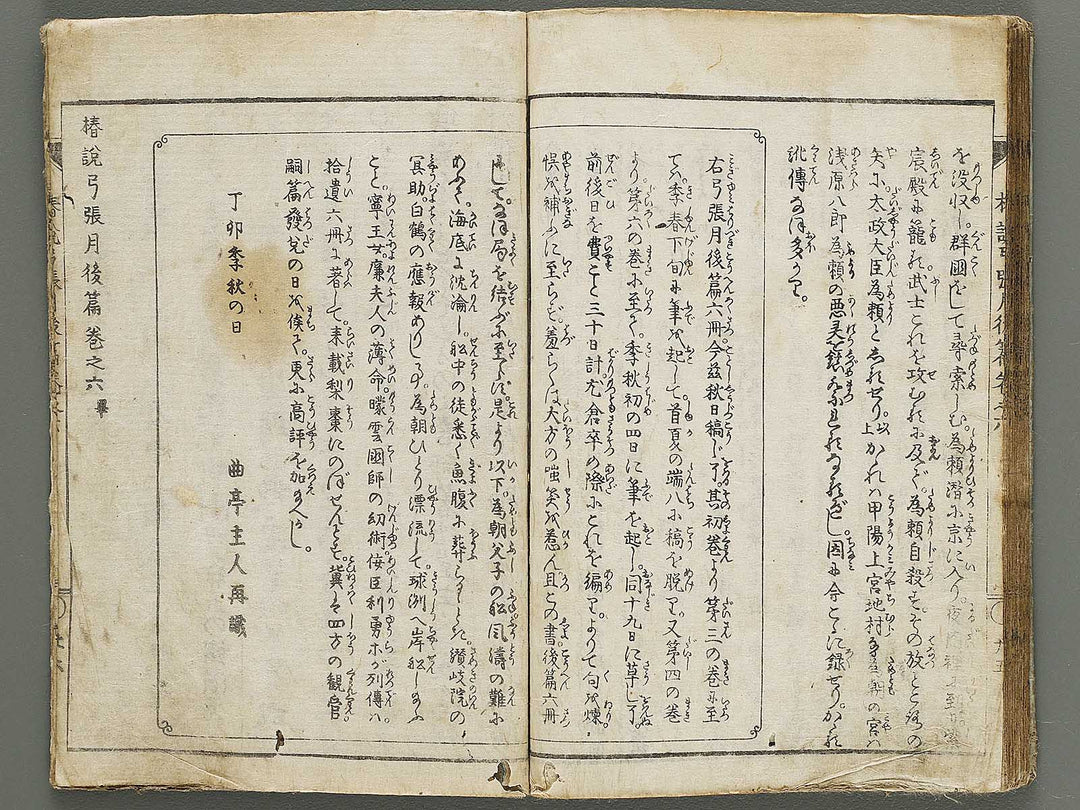 を没収し。群國をして尋索しむ。為頼潜に京に入り。夜
宸殿に籠れば武士これを攻むるに及びて。為頼自殺す。その放ところの
矢に。太政大臣為頼としるせり。以上かくれハ甲陽上宮地村
浅原八郎為頼の悪灵
訛傳なほ多かり。
右弓張月後篇六冊今茲秋日稿し了。其初巻より第三の巻に至
ては。季春下旬に筆を起して首夏の端八に稿を脱せり。又第四の巻
より。第六の巻に至てハ。季秋初の四日に筆を起し。同十九日に草し了。
前後日を費こと三十日計。尤倉卒の際にこれを編せり。よりて句を煉
悞を補ふに至らず。羞らくは大方の嗤笑を惹ん且この書後篇六冊
にして。なほ局を結ぶに至らず。是より以下。為朝父子の舩風濤の難に
あふて。海底に沈淪し。舩中の徒悉く魚腹に葬らるゝとき。讃岐院の
冥助。白鶴の應報ありしかバ。為朝ひとり漂流して。球洲へ岸舩しあふ
こと。寧王女。廉夫人の薄命。曚雲國師の幻術。佞臣利勇ホが列傳ハ
拾遺六冊に著して。来載梨棗にのぼせんとす。冀くは四方の観官
嗣篇發兌の日を俟て。更に高評を加へかし。
丁卯季秋の日
曲亭主人再識
椿説弓張月後篇巻之六 畢